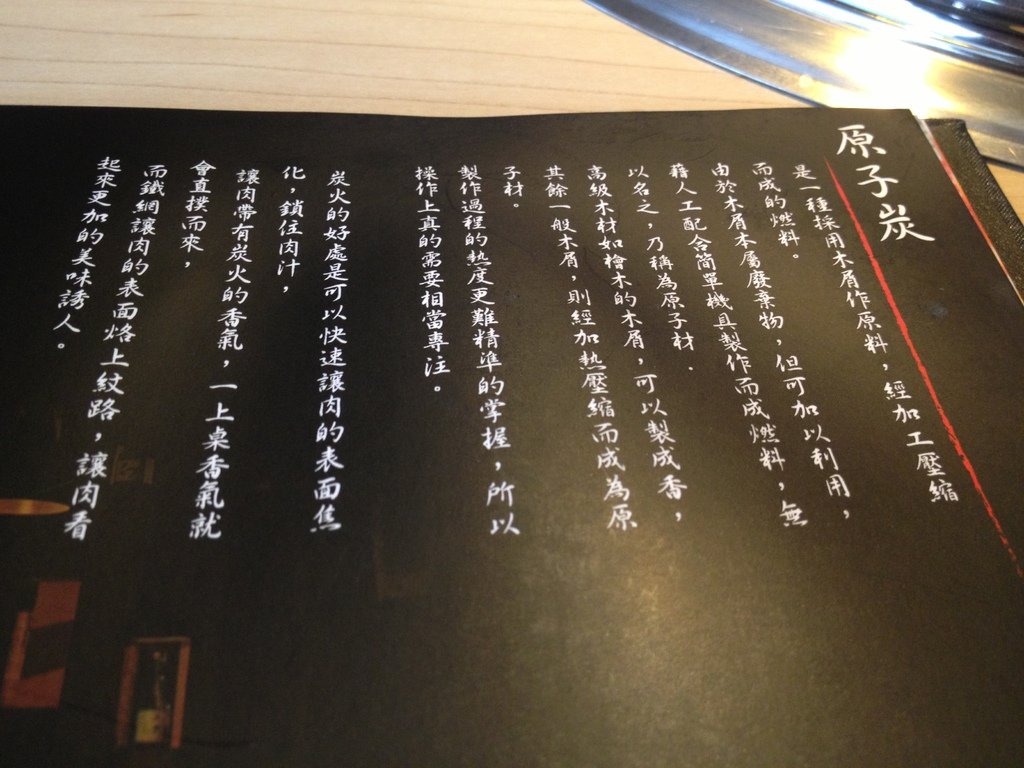 原子炭
是一種採用木屑作原料，經加工壓縮
而成的燃料。
由於木屑本屬廢棄物，但可加以利用，
藉人工配合簡單機具製作而成燃料，無
以名之，乃稱為原子材．
高級木材如檜木的木屑，可以製成香，
其餘一般木屑，則經加熱壓縮而成為原
子材。
製作過程的熱度更難精準的掌握，所以
操作上真的需要相當專注。
炭火的好處是可以快速讓肉的表面焦
化，鎖住肉汁，
讓肉帶有炭火的香氣，一上桌香氣就
會直撲而來，
而鐵網讓肉的表面烙上紋路，讓肉看
起來更加的美味誘人。